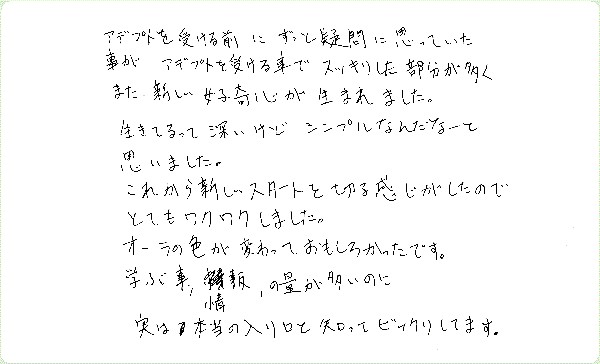 アデプトを受ける前にずっと疑問に思っていた
事が アデプトを受ける事で スッキリした部分が多く
また、新しい好奇心が生まれました。
生きてるって深いけど シンプルなんだなーと
思いました。
これから新しいスタートを切る感じがしたので
とてもワクワクしました。
オーラの色が変わって おもしろかったです。
学ぶ事、情報、の量が多いのに
実は本当の入り口と知ってビックリしてます。